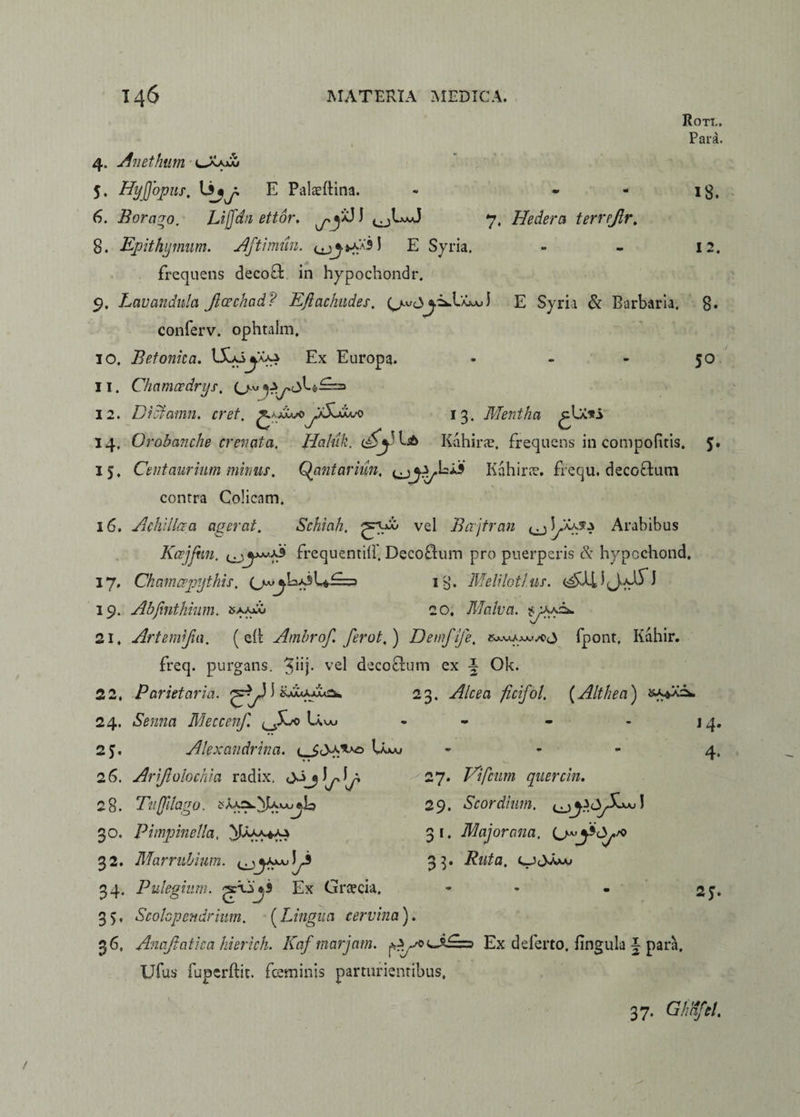 146 MATERIA MEDICA.
Rotl.
Parà.
4. Anethum شبت
5. Hyſſopus. زوفا E Palæſtina. - - - 18.
6. Borago. Liſſân ettôr. لسان الثور 7. Hedera terreſtr.
8. Epithymum. Aftimûn. افتيمون E Syria. - - 12.
frequens decoct. in hypochondr.
9. Lavandula ſtœchad? Eſtachudes. اسطاخودس E Syria & Barbaria. 8.
conſerv. ophtalm.
10. Betonica. Ex Europa. - - - 50
11. Chamædrys. كمادريوس
12. Dictamn. cret. 13. Mentha نعناع
14. Orobanche crenata. Halûk. هالوك Káhiræ. frequens in compoſitis. 5.
15. Centaurium minus. Qantariûn. قنطريون Káhiræ. frequ. decoctum
contra Colicam.
16. Achillæa agerat. Schiah. شياح vel Bæjtran بعيتران Arabibus
Kæjſun. قيسون frequentiſſ. Decoctum pro puerperis & hypochond.
17. Chamæpythis. كمافيطوس 18. Melilothus. اكليل الملك
19. Abſinthium. شيبة 20. Malva. خبيزة
21. Artemiſia. (eſt Ambroſ. ſerot.) Demſiſe. دمسيسة ſpont. Kahir.
freq. purgans. Ʒiij. vel decoctum ex ½ Ok.
22. Parietaria. حشيشة الريح 23. Alcea ficifol. (Althea) ختمية
24. Senna Meccenſ. سنا مكي - - - - 14.
25. Alexandrina. سنا صعيدي - - - 4.
26. Ariſtolochia radix. زراوند 27. Viſcum quercin.
28. Tuſſilago. 29. Scordium. اسكرديون
30. Pimpinella. بمبنيلا 31. Majorana. مردقوس
32. Marrubium. فراسيون 33. Ruta. سدب
34. Pulegium. Ex Græcia. - - - 25.
35. Scolopendrium. (Lingua cervina).
36. Anaſtatica hierich. Kaf marjam. كف مريم Ex deſerto. ſingula ½ parà.
Uſus ſuperſtit. fœminis parturientibus.
37. Ghâſel.